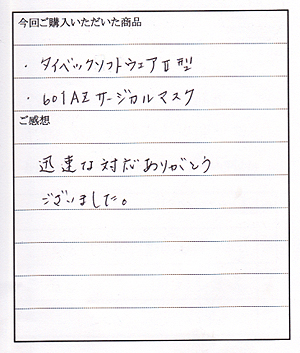 今回ご購入いただいた商品
・タイベックソフトウェアⅡ型
・601AZ サージカルマスク
ご感想
迅速な対応ありがとう
ございました。